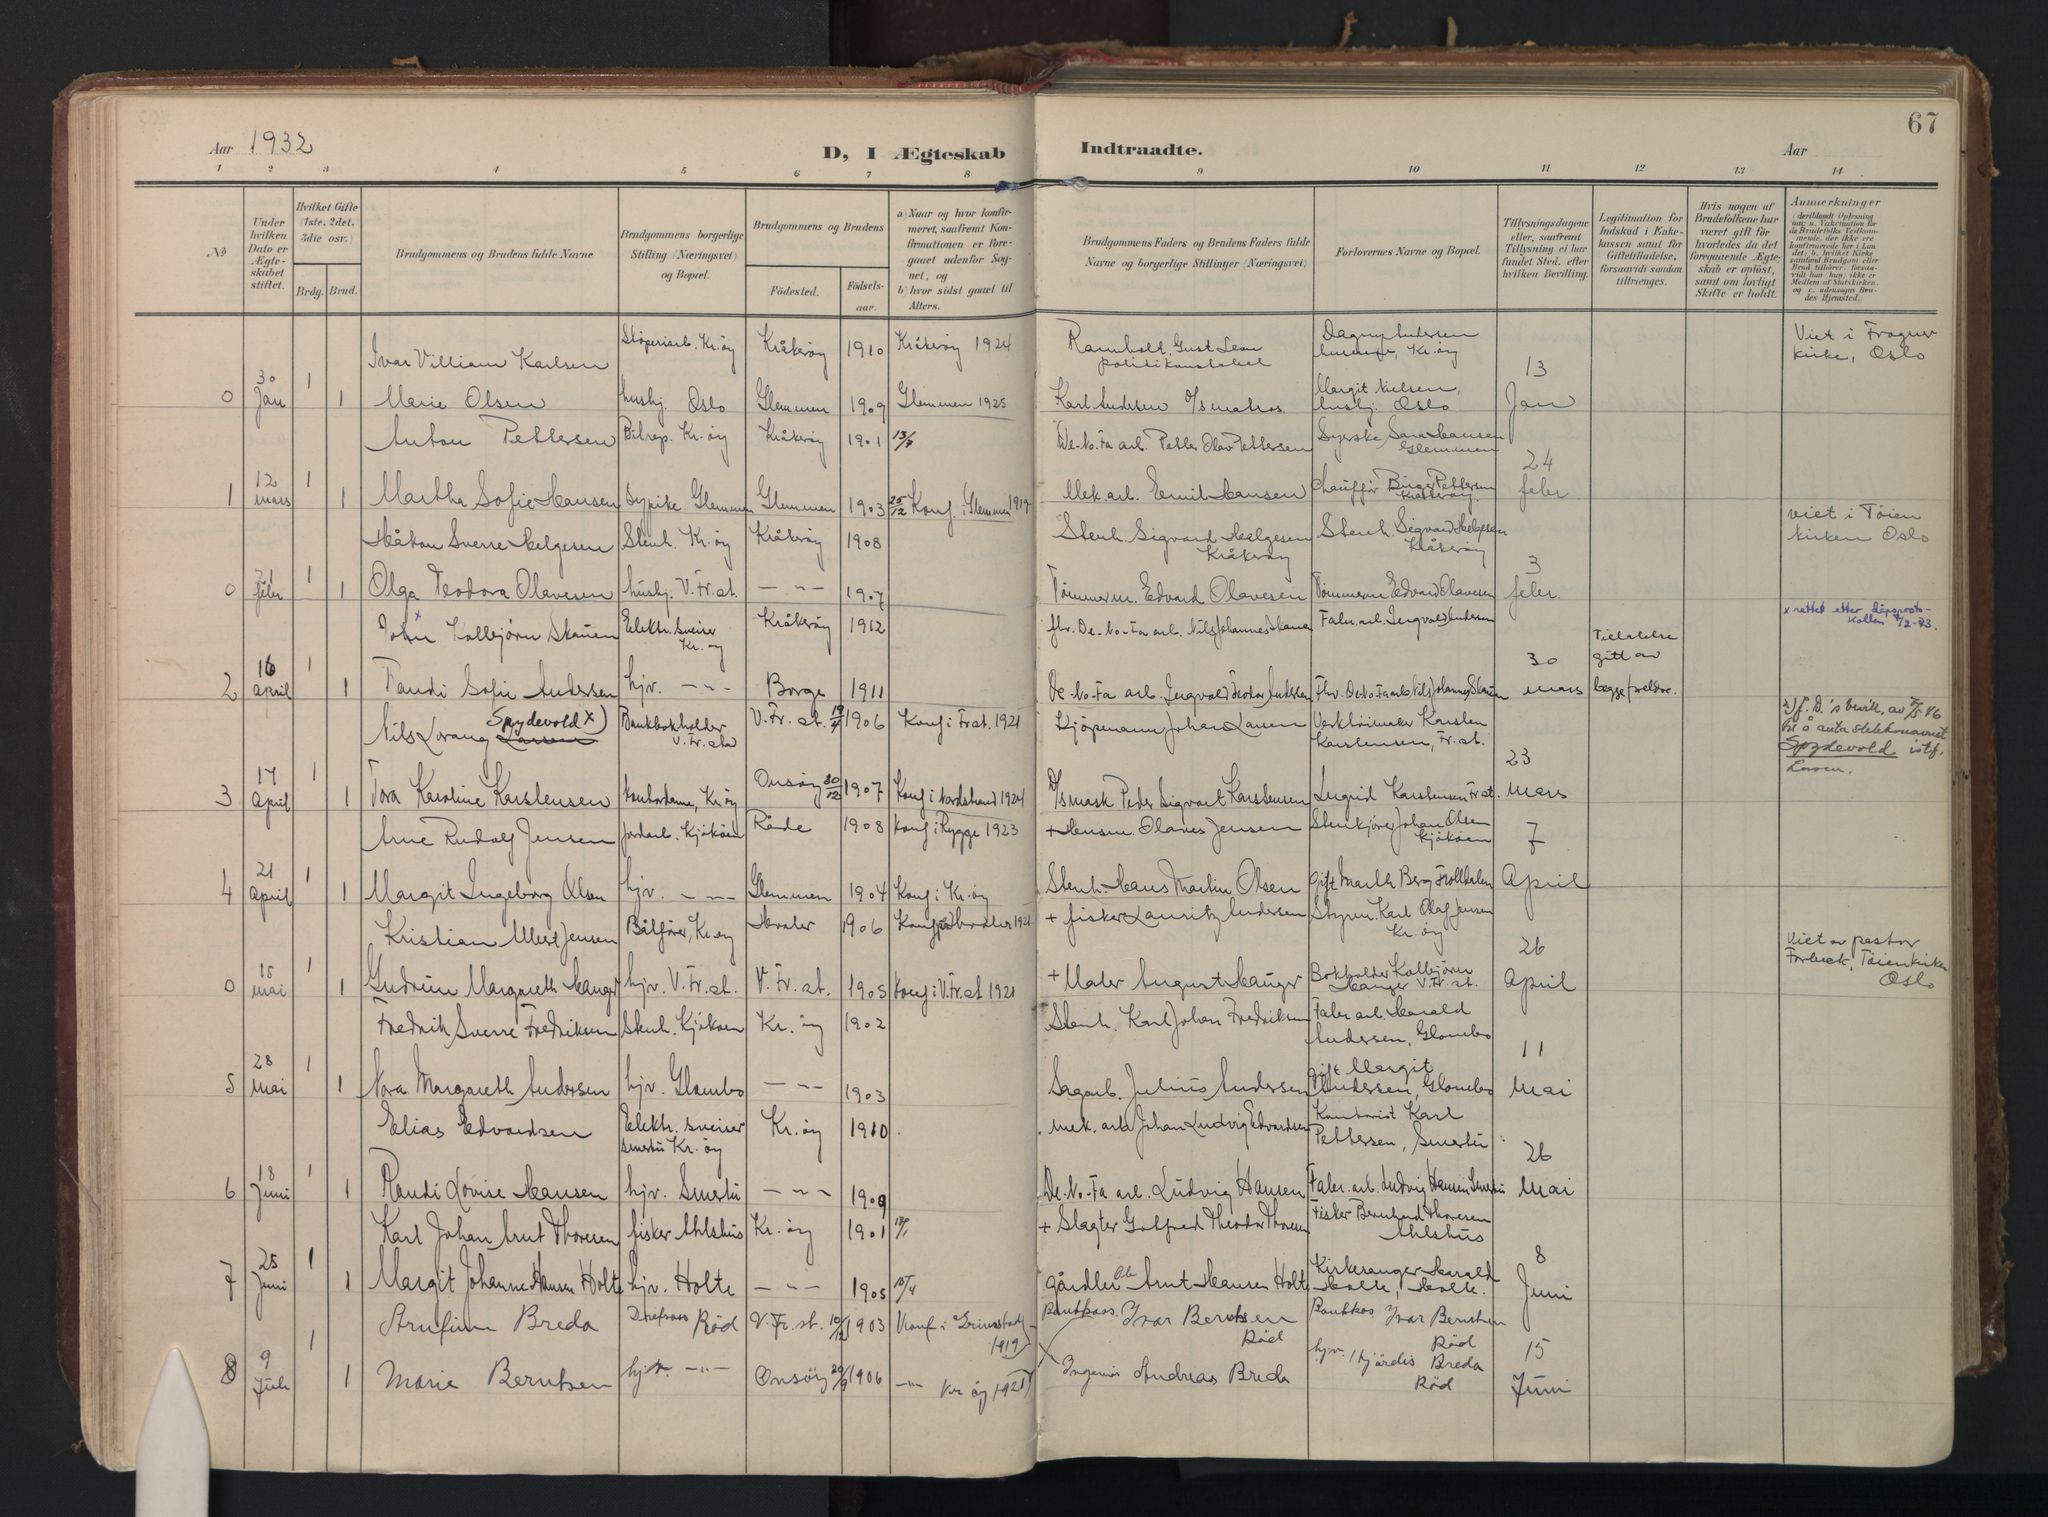 67
Aar 1932
D, I Ægteskab Indtraadte.
Aar
1 2 3 4 5 6 7 8 9 10 11 12 13 14
No
Under hvilken Dato er Ægteskabet stiftet.
Hvilket Gifte (1ste, 2det, 3die osv.)
Brdg. Brud.
Brudgommens og Brudens fulde Navne
Brudgommens borgerlige Stilling (Næringsvei) og Bopæl.
Brudgommens og Brudens
Födested.
Födselsaar.
a) Naar og hvor konfirmeret, saafremt Konfirmationen er foregaaet udenfor Sognet, og
b) hvor sidst gaaet til Alters.
Brudgommens Faders og Brudens Faders fulde Navne og borgerlige Stillinger (Næringsvei)
Forlovernes Navne og Bopæl.
Tillysningsdagene eller, saafremt Tillysning ei har fundet Sted, efter hvilken Bevilling.
Legitimation for Indskud i Enkekassen samt för Giftetilladelse, forsaavidt saadan tiltrænges.
Hvis nogen af Brudefolkene har været gift før hvorledes da det foregaaende Ægteskab er opløst, samt om lovligt Skifte er holdt.
Anmærkninger
Ivar Villiam Karlsen Støperiarb. Kr.øy Kråkerøy 1910 Kråkerøy 1924 politikonstabel Dagny Andersen Kr.øy Viet i Frogner kirke, Oslo
0 30 Jan 1 1 Marie Olsen hushj. Oslo Glemmen 1909 Glemmen 1925 Karl Andersen Margit Nielsen, hushj. Oslo 13 Jan
Anton Pettersen Bilrep. Kr.øy Kråkerøy 1901 13/7 De-No-Fa arb. Petter Olav Pettersen Syerske Sara Hansen Glemmen
1 12 mars 1 1 Martha Sofie Hansen Sypike Glemmen Glemmen 1903 25/12 Konf. i Glemmen 1919 Mek. arb. Emil Hansen Chauffør Birger Pettersen Kråkerøy 24 febr
Håkon Sverre Helgesen Stenh. Kr.øy Kråkerøy 1908 Stenh. Sigvard Helgesen Kråkerøy Stenh. Sigvard Helgesen Kråkerøy viet i Tøien kirken Oslo
0 21 febr 1 1 Olga Teodora Olavesen hushj. V. Fr.st. - " - 1907 Tømmerm. Edvard Olavesen Tømmerm Edvard Olavesen 3 febr.
John x Kolbjørn Skauen Elektr. sveiser Kr.øy Kråkerøy 1912 fhv. De-No-Fa arb. Nils Johannes Skauen Fabr. arb. Ingvald Andersen x rettet etter dåpsprotokollen
2 16 April 1 1 Randi Sofie Andersen hjv. - " - Borge 1911 De-No-Fa arb. Ingvald Teodor Andersen Fhv. De No Fa arb. Nils Johannes Skauen 30 mars Tilladelse gitt av begge foreldre.
Nils Lorang Larsen Spydevold x) Bankbokholder V. Fr.stad V. Fr. st. 1906 Konf i Fr.st. 1921 Kjøpmann Johan Larsen Verktøimaker Karsten Karstensen, Fr. st. x) f. D.'s bevill. av 2/5 46 til å anta slektsnavnet Spydevold istf. Larsen.
3 17 April 1 1 Tora Karoline Karstensen Kontordame, Kr.øy Onsøy 30/12 1907 Konf i Nordstrand 1924 D/s mask Peder Sigvart Karstensen Ingrid Karstensen Fr.st. 23 mars
Arne Rudolf Jensen jordarb. Kjøkøen Råde 1908 konf i Rygge 1923 + Hansm. Olaves Jensen Stenkjører Johan Olsen Kjøkøen
4 21 April 1 1 Margit Ingeborg Olsen hjv. - " - Glemmen 1904 Konf i Kr.øy Stenh. Hans Martin Olsen gift Marth Berg Trolldalen 7 April
Kristian Albert Jensen Båtfører, Kr.øy Hvaler 1906 Konf på Hvaler 1921 + fisker Lauritz Andersen Styrm. Karl Olaf Jensen Kr.øy
0 15 mai 1 1 Gudrun Margareth Hauger hjv. V. Fr. st. V. Fr. st. 1905 konf i V. Fr. st 1921 + Maler August Hauger Bokholder Kolbjørn Hauger V. Fr. st. 26 April Viet av pastor Forbech, Tøienkirken Oslo
Fredrik Sverre Fredriksen Stenh. Kjøkøen Kr. øy 1902 Stenh. Karl Johan Fredriksen Fabr. arb. Harald Andersen, Glombo
5 28 Mai 1 1 Nora Margareth Andersen hjv. Glombo - " - 1903 Sagarb. Julius Andersen gift Margit Andersen, Glombo 11 Mai
Elias Edvardsen Elektr. sveiser Smertu Kr. øy Kr. øy 1910 mek. arb Johan Ludvig Edvardsen Kontorist Karl Pettersen, Smertu
6 18 Juni 1 1 Randi Lovise Hansen hjv. Smertu - " - 1909 De-No-Fa arb. Ludvig Hansen Fabr. arb. Ludvig Hansen Smertu 26 Mai
Karl Johan Arnt Thoresen fisker Ahlshus Kr. øy 1901 + Slagter Gotfred Theodor Thoresen Fisker Bernhard Thoresen Ahlshus
7 25 Juni 1 1 Margit Johanne Hansen Holte hjv. Holte - " - 1905 15/4 Gårdbr. Arnt Hansen Holte Kirkesanger Harald Holte, Holte. 8 Juni
Arnfinn Breda Rød V. Fr. st. 10/12 1903 Konf i Grimstad 1919 Ivar Berntsen Rød Ivar Berntsen Rød
8 9 Juli 1 1 Marie Berntsen hjv - " - Onsøy 20/9 1906 - " - Kr øy 1921 Ingeniør Andreas Breda hjv. Hjördis Breda Röd 15 Juni